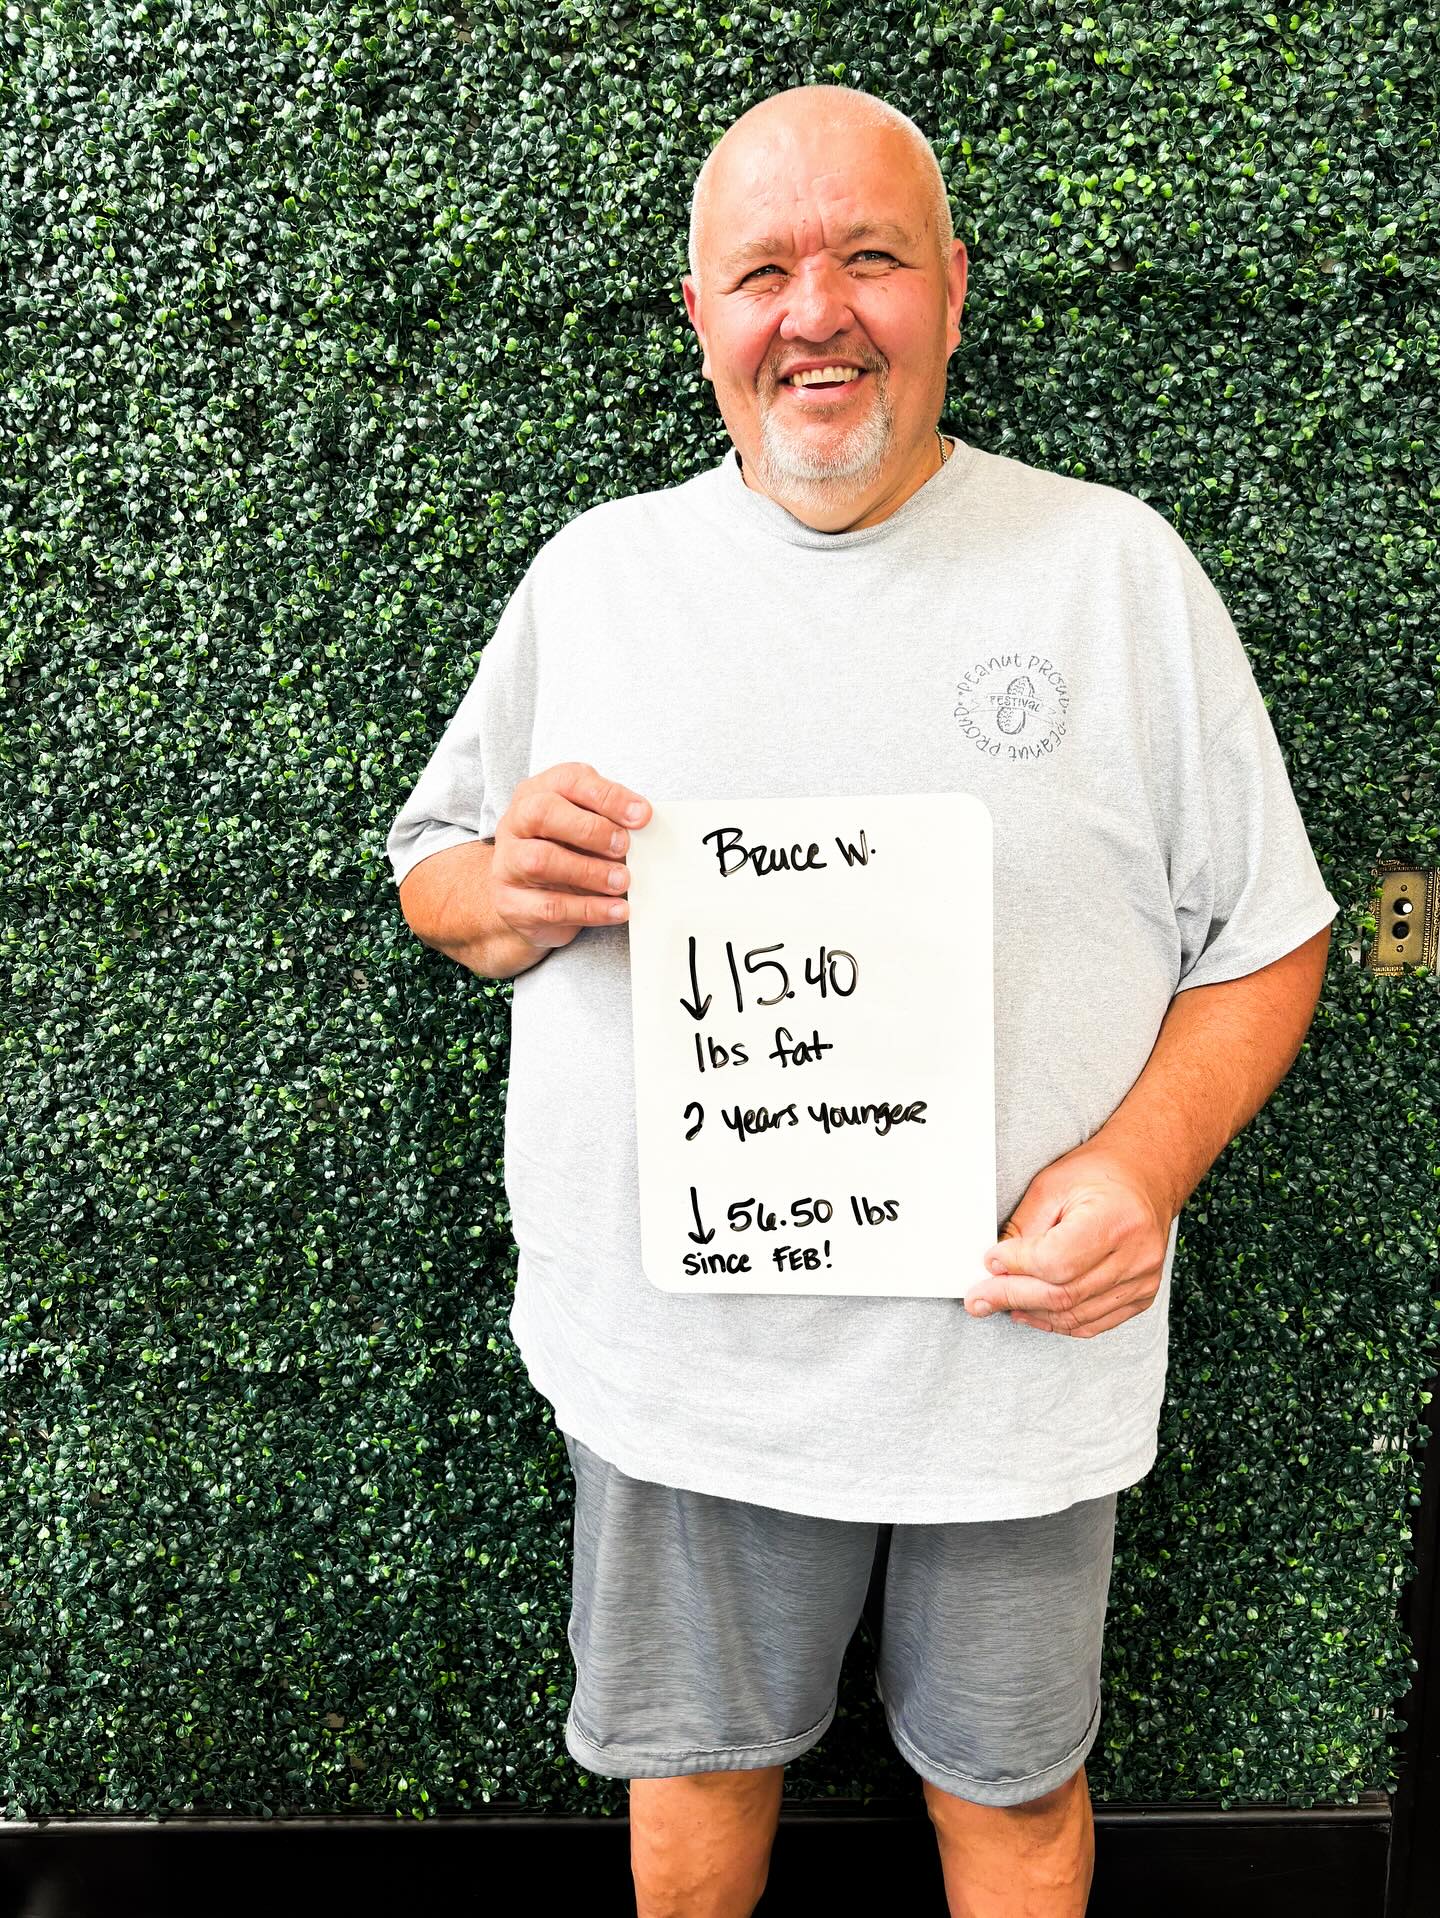 PEANUT PROUD
FESTIVAL
PEANUT PROUD
Bruce W.
↓ 15.40
lbs fat
2 years younger
↓ 56.50 lbs
since FEB!